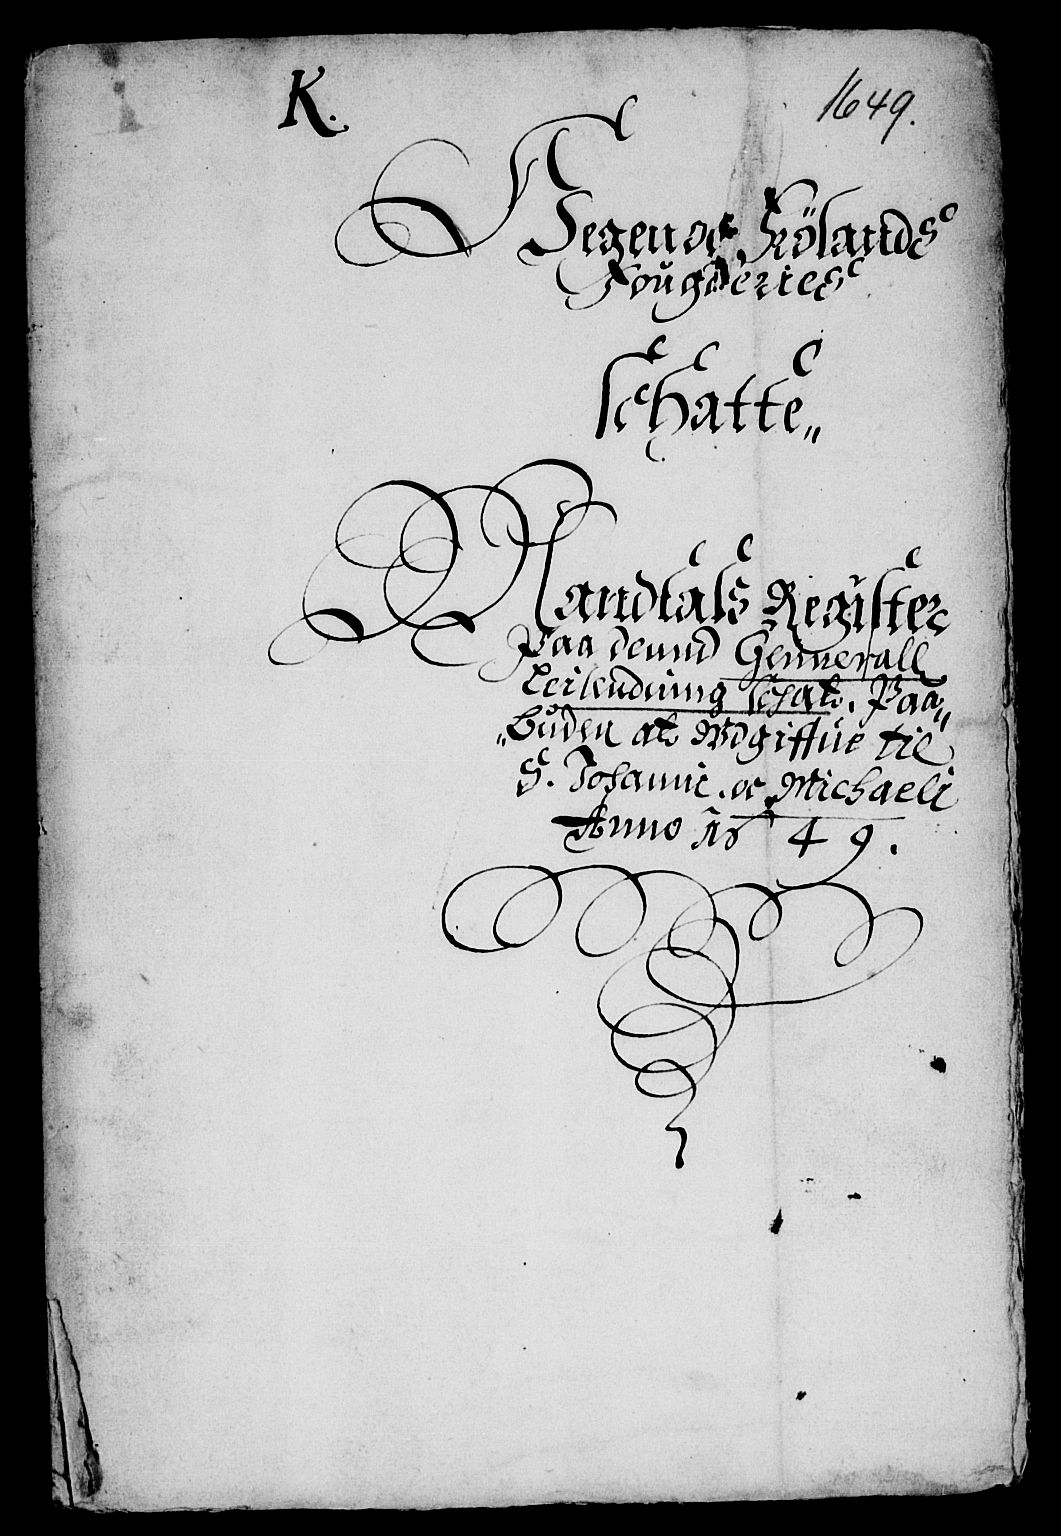 K.
1649.
Segen oc Frölands
Foŭgderies
schatte„
Mandtals Register
Paa dennd Gennerall
Leilendning schat. Paa„
„büden at Vdgiffue til
S. Johanni. oc Michaeli
Anno 1649.